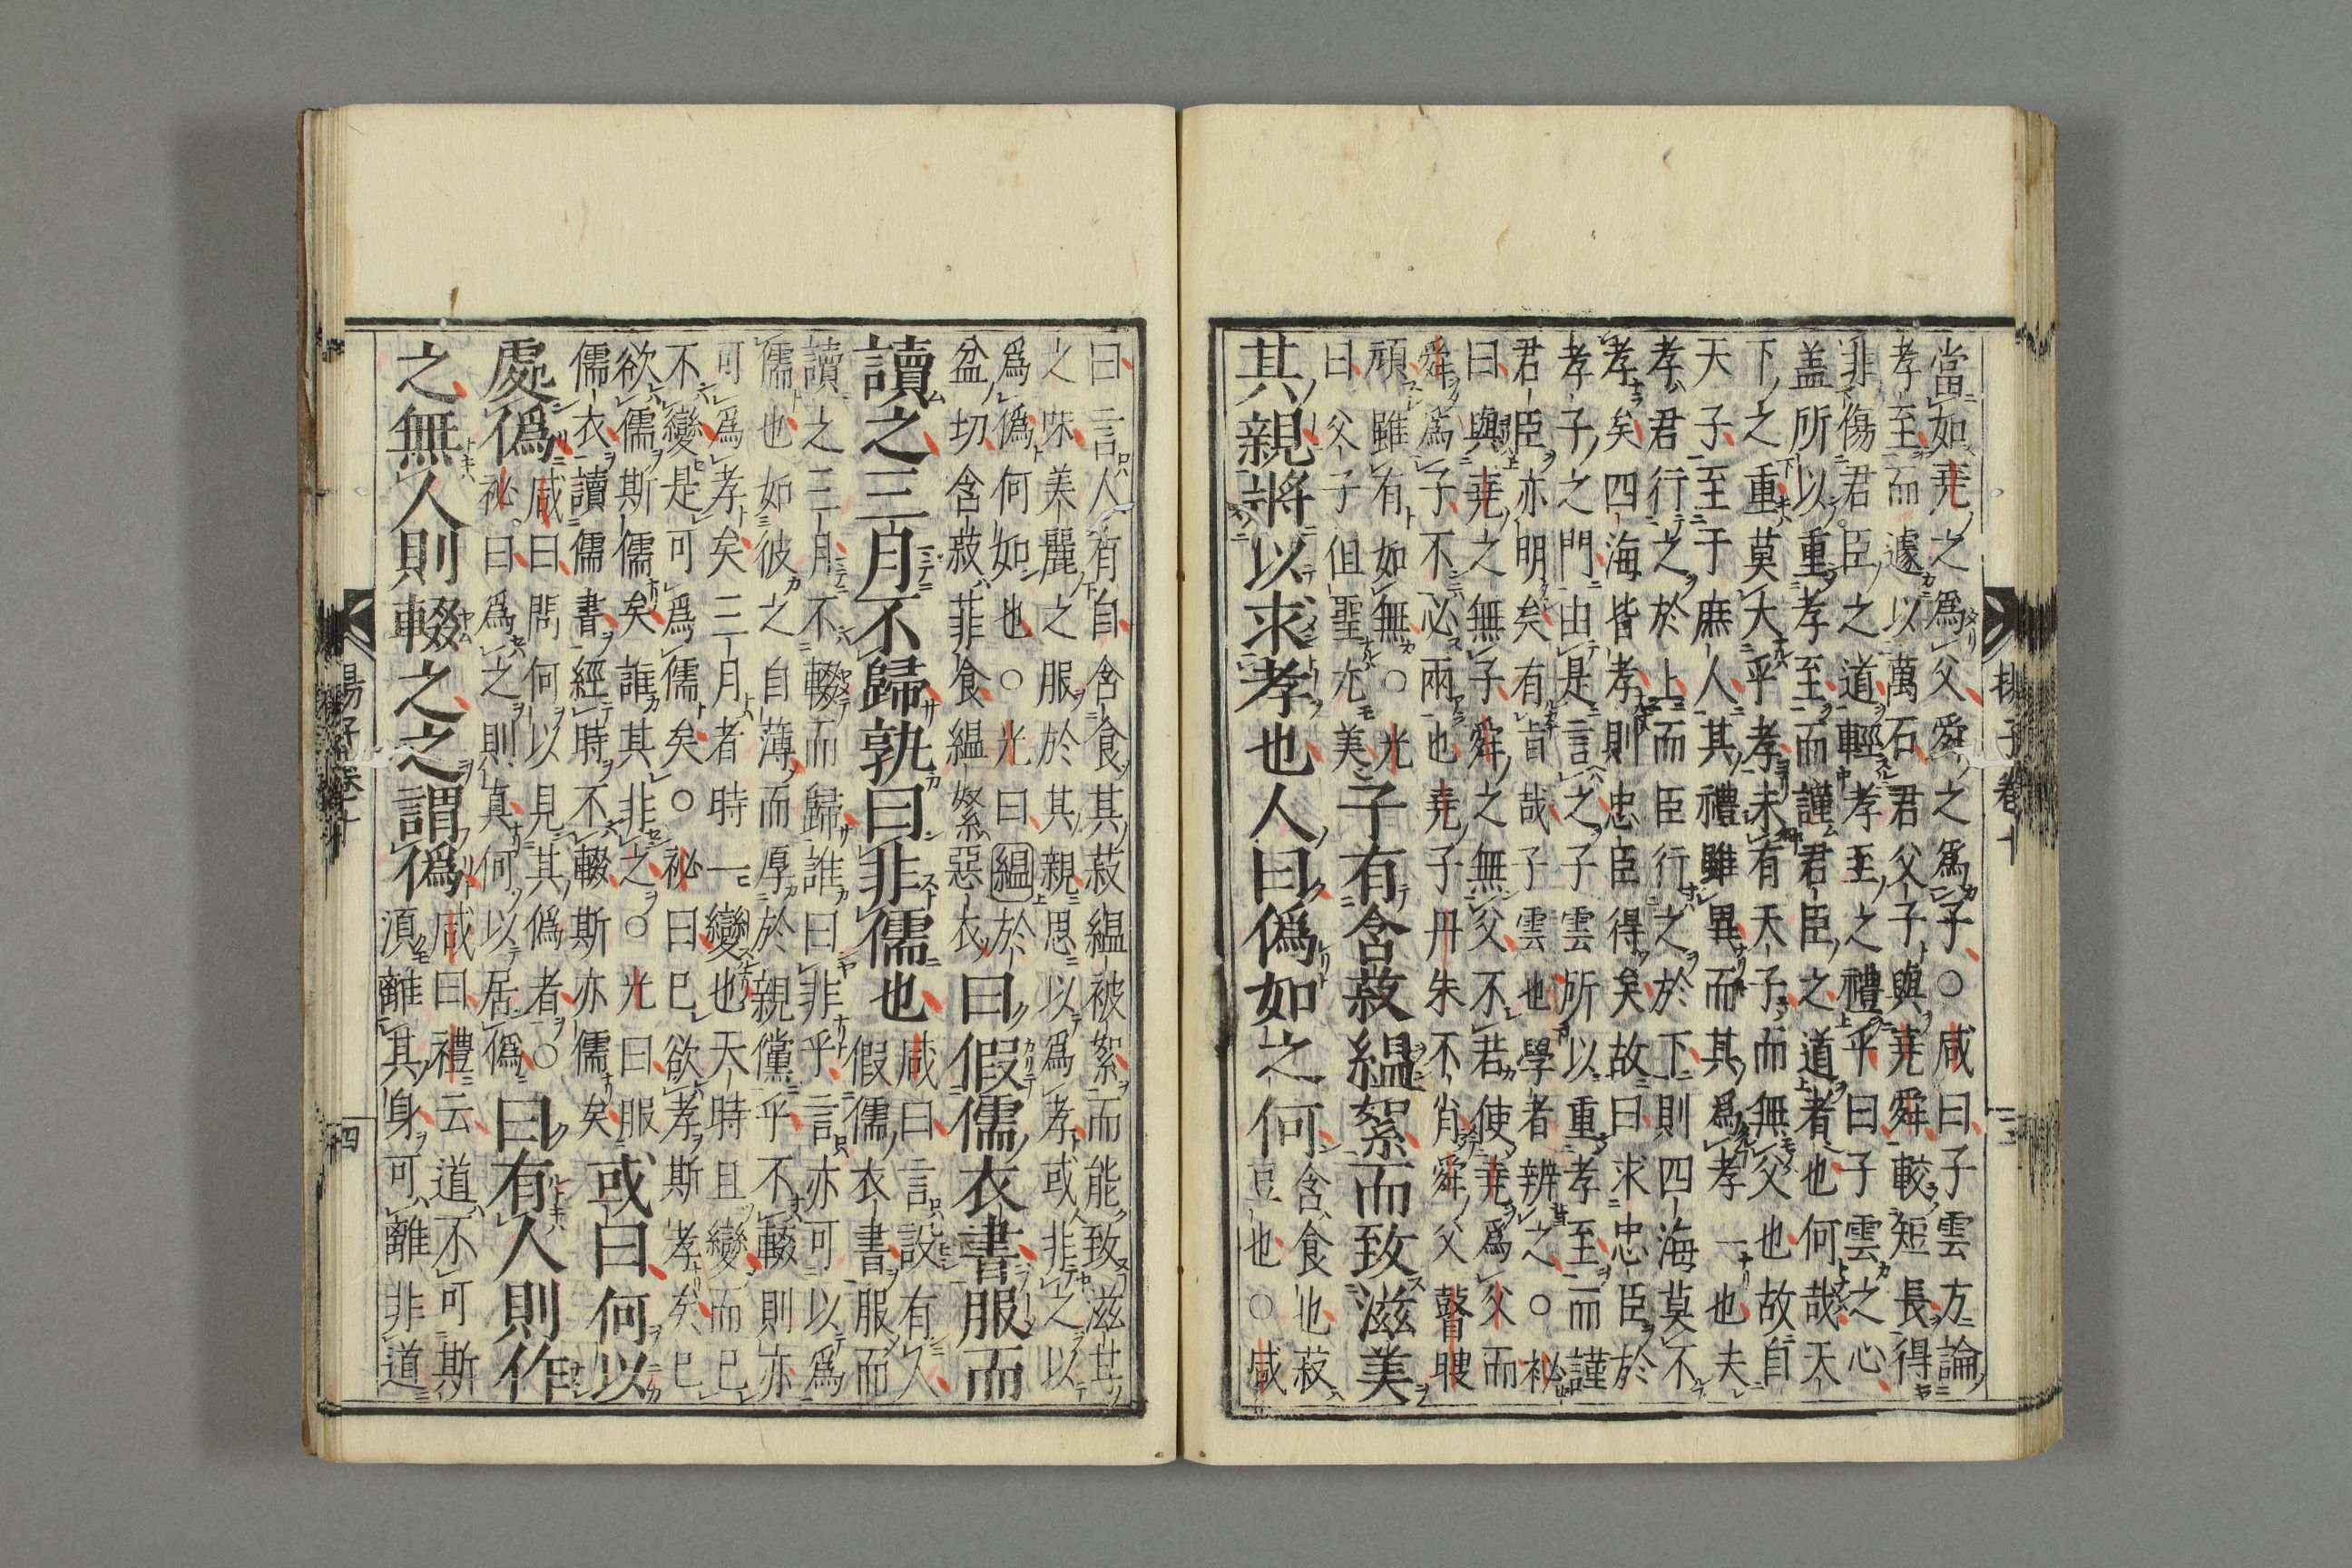 當如堯之為父舜之為子○咸曰子雲方論
孝至而遽以萬石君父子與堯舜較短長得
非傷君臣之道輕孝至之禮乎曰子雲之心
盖所以重孝至而謹君臣之道者也何哉天
下之重莫大乎孝未有天子而無父也故自
天子至于庶人其禮雖異而其爲孝一也夫
孝君行之於上而臣行之於下則四海莫不
孝矣四海皆孝則忠臣得矣故曰求忠臣於
孝子之門由是言之子雲所以重孝至而謹
君臣亦明矣有旨哉子雲也學者辨之○祕
曰與堯之無子舜之無父不若使堯爲父而
舜爲子不必兩也堯子丹朱不肖舜父瞽瞍
頑雖有如無○光
曰父子但聖尤美
子有含菽縕絮而致滋美
其親將以求孝也人曰僞如之何
含食也菽
豆也○咸
曰言人有自含食其菽縕被絮而能致滋甘
之味美麗之服於其親思以爲孝或非之以
爲僞何如也○光曰縕於
盆切含菽菲食縕絮惡衣
曰假儒衣書服而
讀之三月不歸孰曰非儒也
咸曰言設有人
假儒衣書服而
讀之三月不輟而歸誰曰非乎言亦可以爲
儒也如彼之自薄而厚於親儻乎不輟則亦
可爲孝矣三月者時一變也天時且變而已
不變是可爲儒矣○祕曰巳欲孝斯孝矣已
欲儒斯儒矣誰其非之○光曰服
儒衣讀儒書經時不輟斯亦儒矣
或曰何以
處僞
咸曰問何以見其僞者○
祕曰爲之則真何以居僞
曰有人則作
之無人則輟之之謂僞
咸曰禮云道不可斯
須離其身可離非道
揚子卷十
三
揚子卷十
四